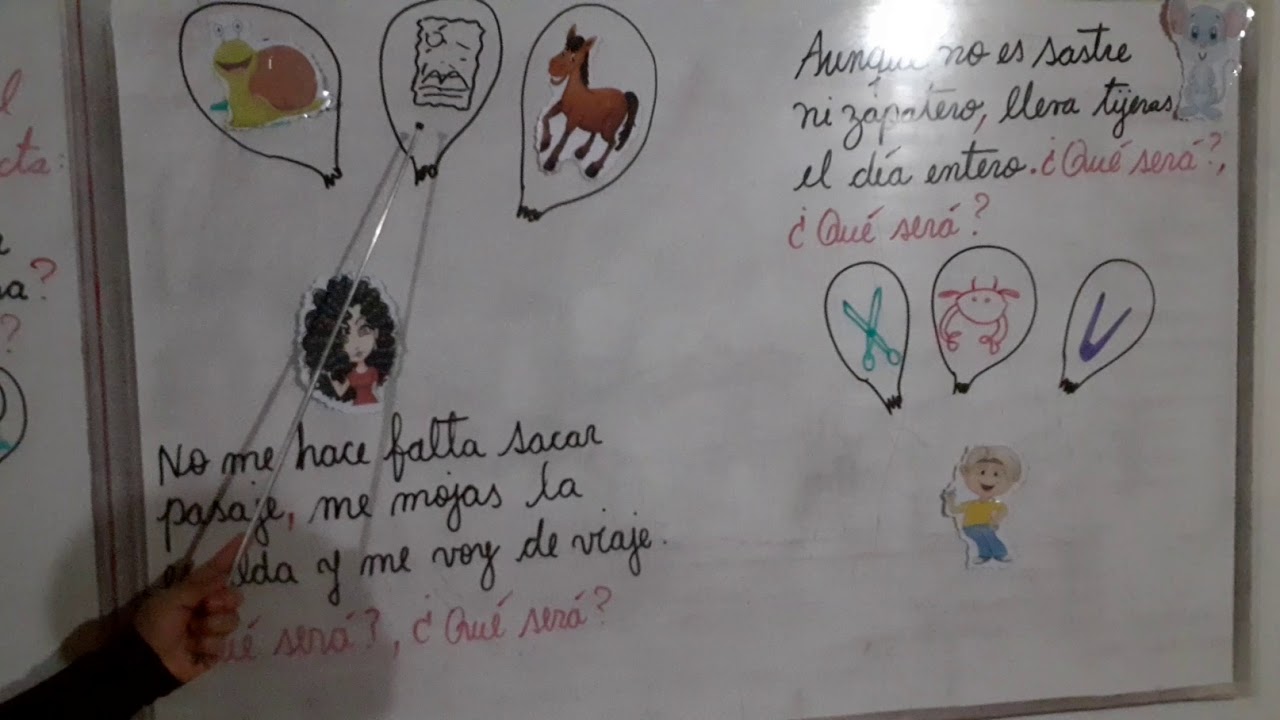 l
cta:
a?
?
No me hace falta sacar
pasaje, me mojas la
lda y me voy de viaje.
ué será?, ¿Qué será?
Aunque no es sastre
ni zapatero, lleva tijeras
el día entero. ¿Qué será?,
¿Qué será?